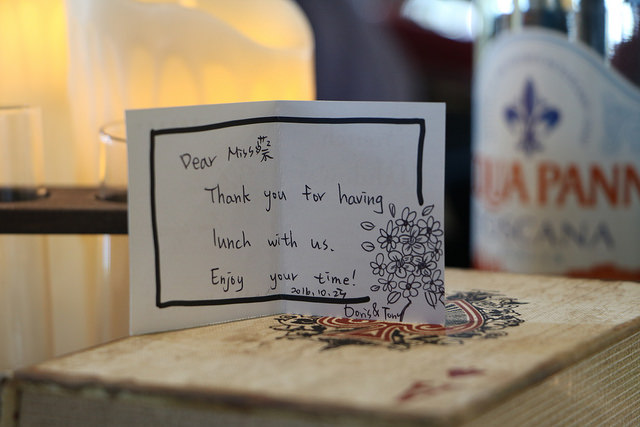 Dear Miss蔡
Thank you for having
lunch with us.
Enjoy your time!
2016.10.23
Doris & Tony
QUA PANN
SCANA